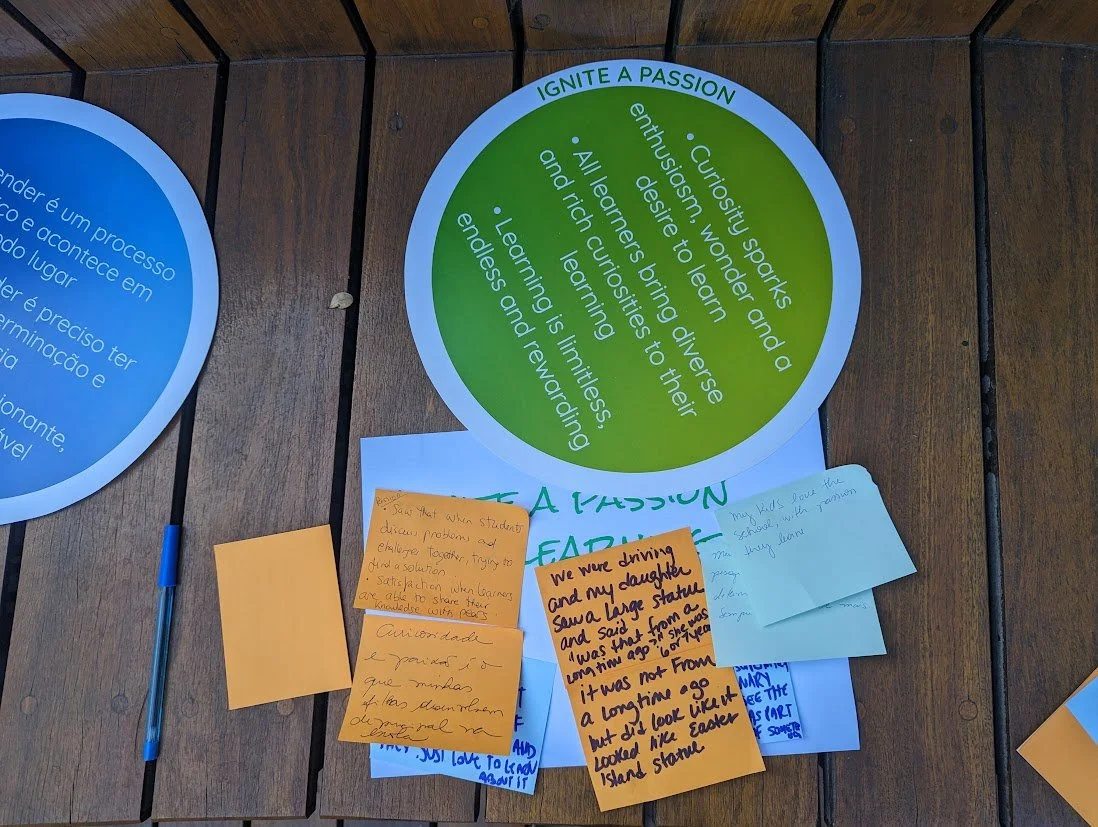 ender é um processo
co e acontece em
do lugar
der é preciso ter
erminação e
cia
ionante,
ável
IGNITE A PASSION
• Curiosity sparks
enthusiasm, wonder and a
desire to learn
• All learners bring diverse
and rich curiosities to their
learning
• Learning is limitless,
endless and rewarding
A PASSION
• Saw that when students
discuss problems and
challenges together, trying to
find a solution
• Satisfaction when learners
are able to share their
knowledge with peers
Curiosidade
e paixão é o
que minhas
filhas desenvolvem
de principal na
escola
AND
THEY JUST LOVE TO LEARN
ABOUT IT
we were driving
and my daughter
saw a large statue
and said
"was that from a
long time ago?" she was
6 or 7 years
it was not From
a long time ago
but did look like it
looked like Easter
Island statue
My kids love the
school, with passion
they learn
NARY
SEE THE
AS PART
OF SOMETH